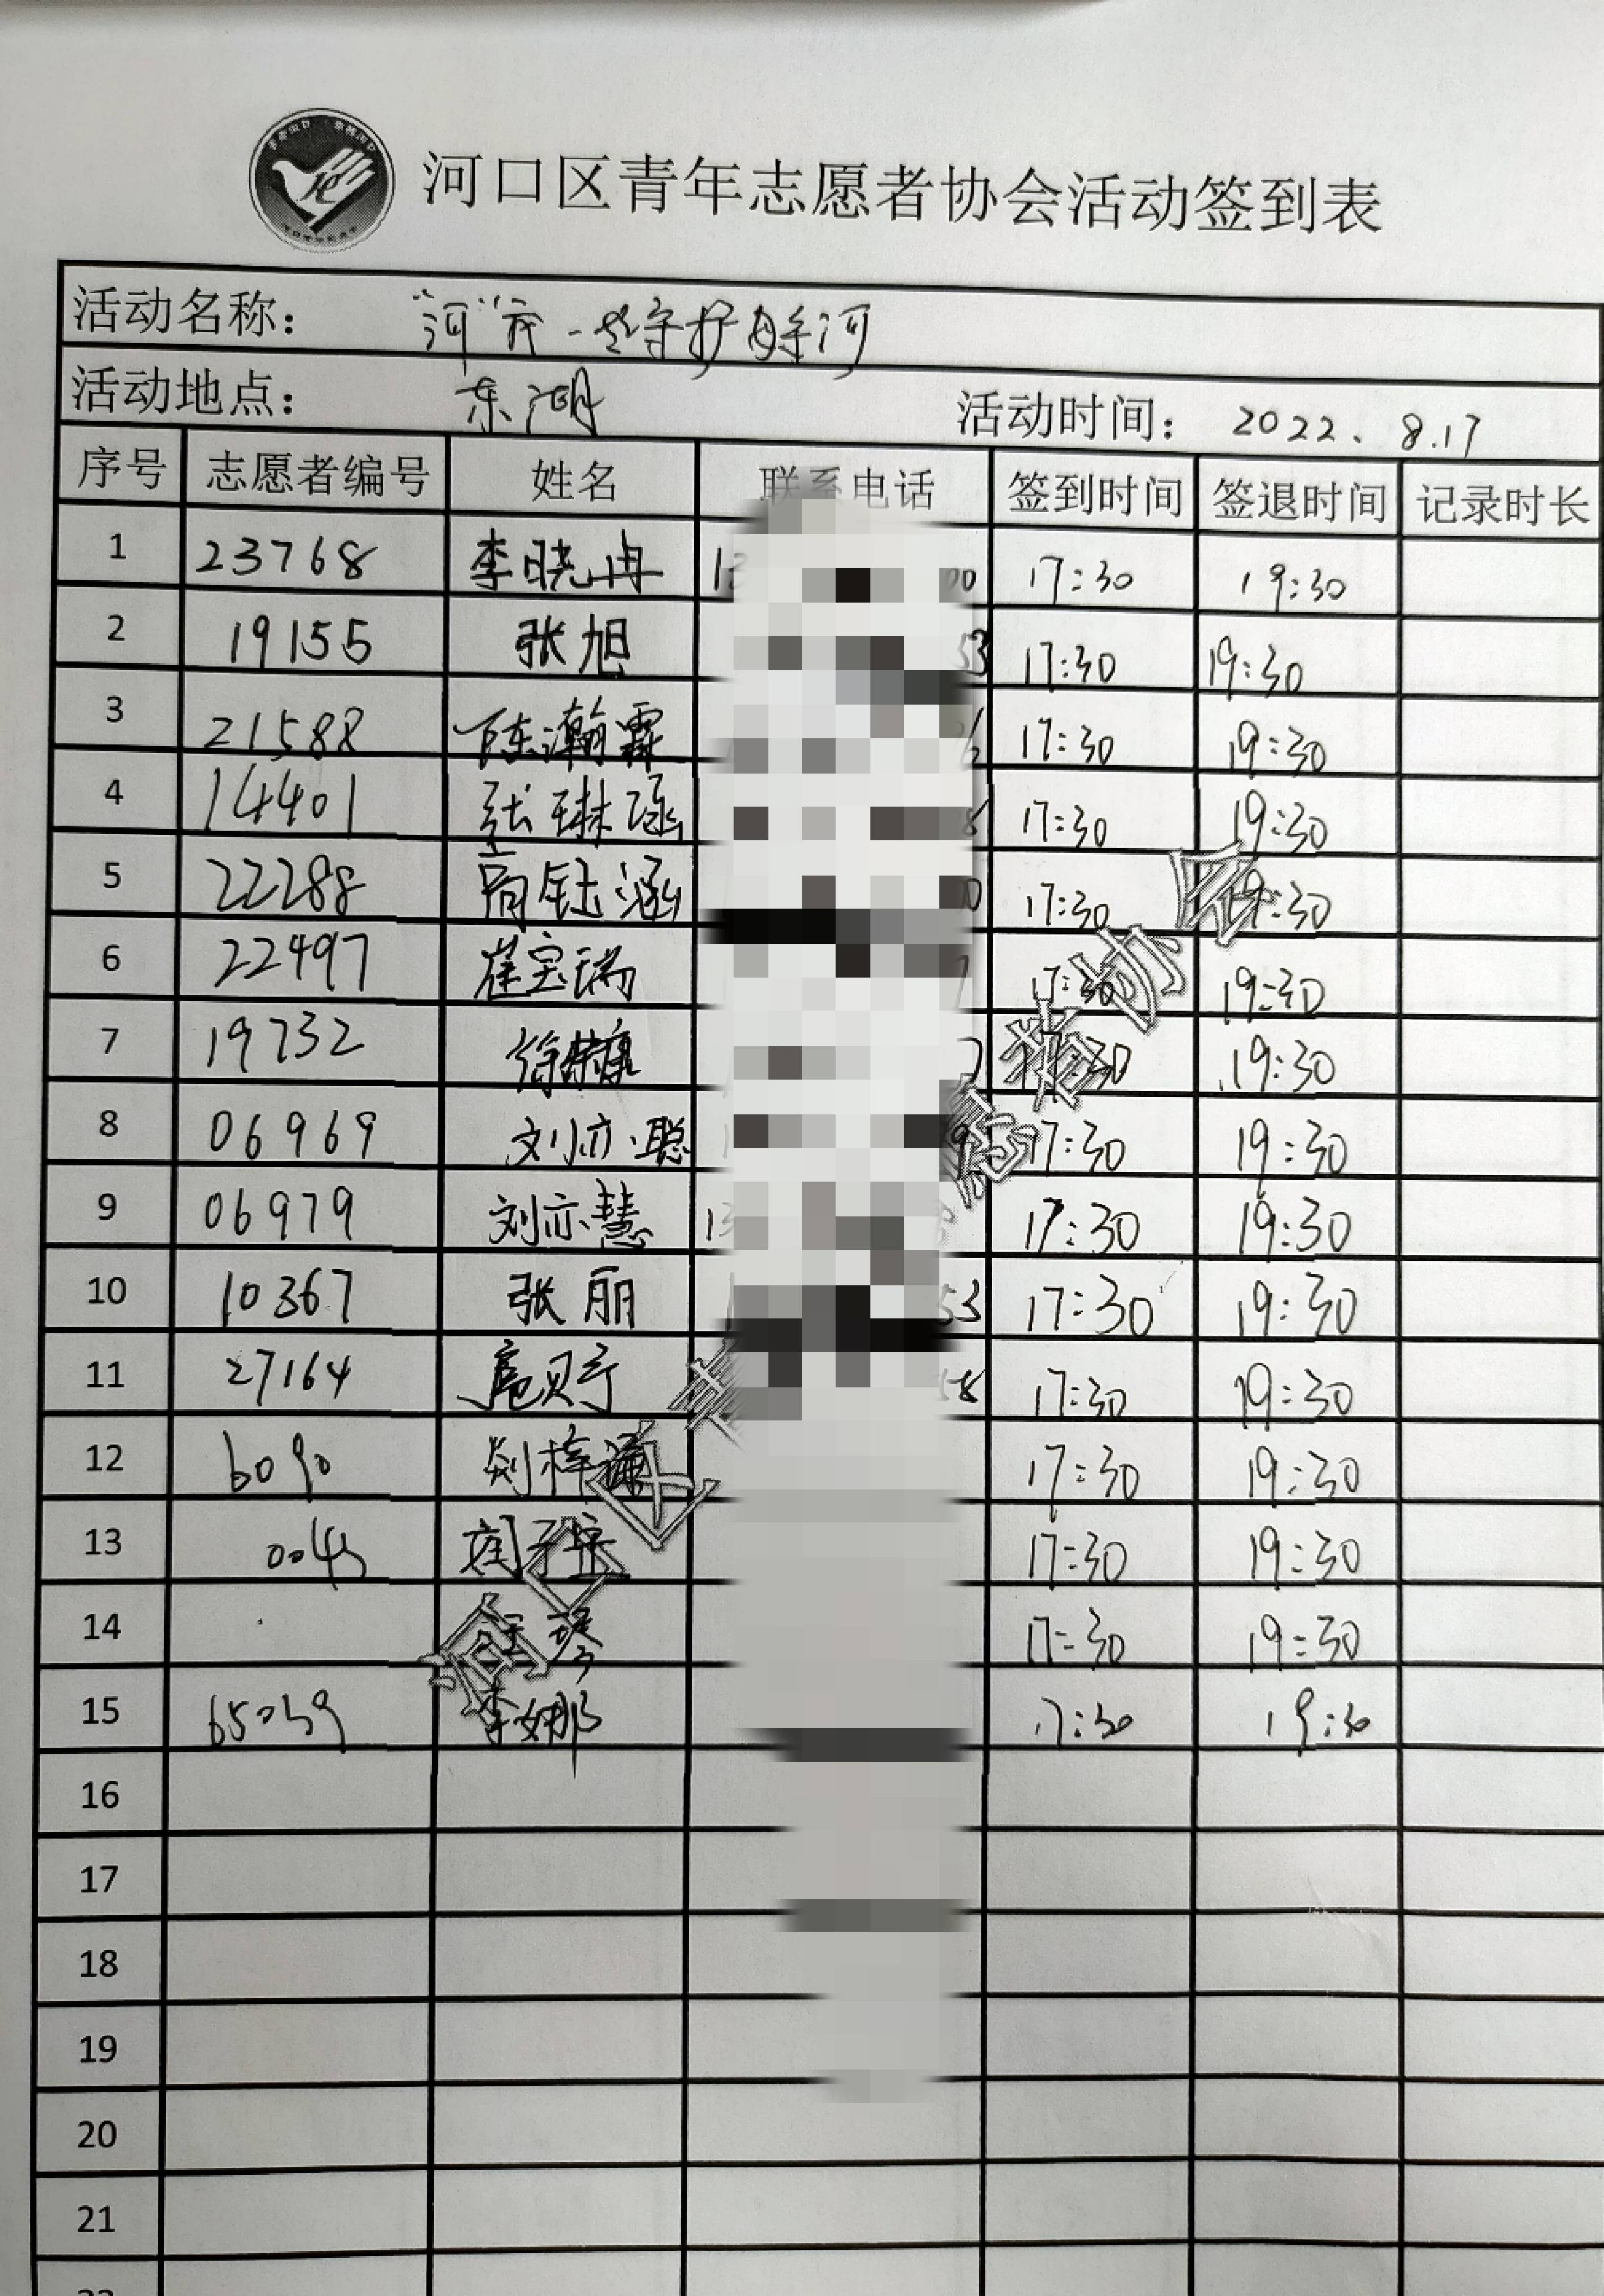 河口区青年志愿者协会活动签到表
活动名称： 守护母亲河
活动地点： 东湖 活动时间： 2022、8.17
序号 志愿者编号 姓名 联系电话 签到时间 签退时间 记录时长
1 23768 李晓冉 17:30 19:30
2 19155 张旭 53 17:30 19:30
3 21588 陈瀚霖 17:30 19:30
4 14401 张琳涵 17:30 19:30
5 22288 高钰涵 17:30 19:30
6 22497 崔宝瑞 17:30 19:30
7 19732 徐 17:30 19:30
8 06969 刘亦聪 17:30 19:30
9 06979 刘亦慧 17:30 19:30
10 10367 张丽 53 17:30 19:30
11 27164 17:30 19:30
12 6090 刘梓谦 17:30 19:30
13 0045 17:30 19:30
14 17:30 19:30
15 65039 李娜 17:30 19:30
16
17
18
19
20
21
河口区青年志愿者协会